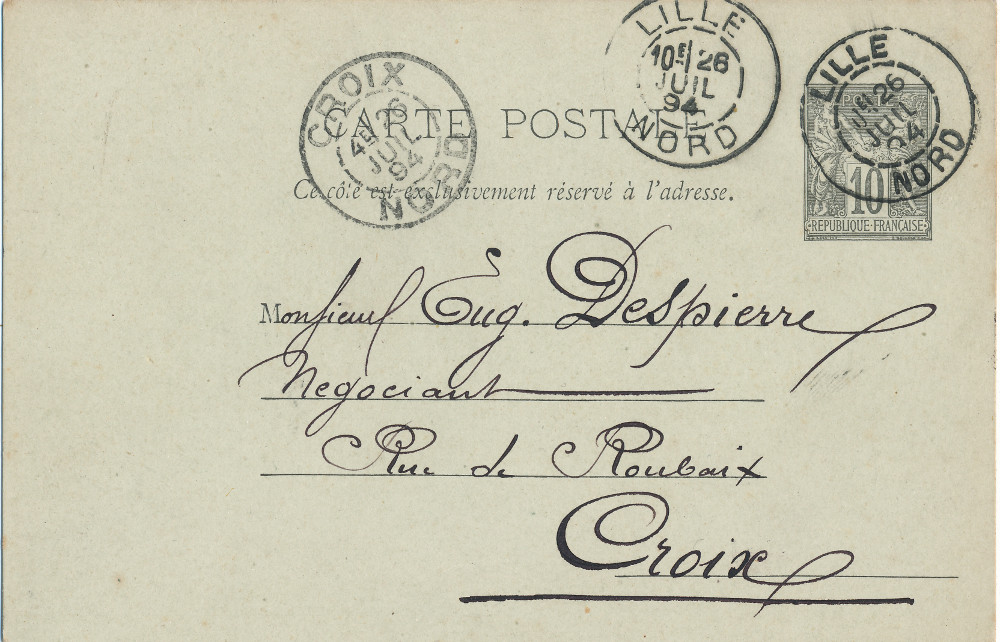 LILLE
10E 26
JUIL
94
NORD
LILLE
26
JUIL
94
NORD
CROIX
4E 26
JUIL
94
NORD
CARTE POSTALE
Ce côté est exclusivement réservé à l'adresse.
10
REPUBLIQUE FRANÇAISE
Monsieur Eug. Despierre
Negociant
Rue de Roubaix
Croix